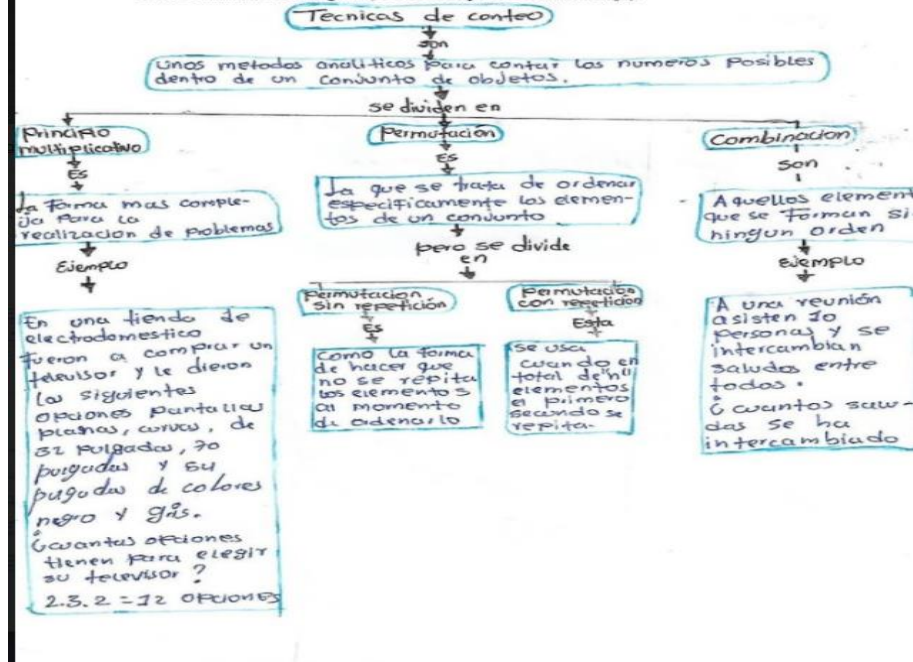 Tecnicas de conteo
son
Unos metodos analiticos para contar los numeros posibles
dentro de un conjunto de objetos.
se dividen en
Principio
multiplicativo
Es
La forma mas comple-
ja para la
realizacion de problemas
Ejemplo
En una tienda de
electrodomestico
fueron a comprar un
televisor y le dieron
las siguientes
opciones pantallas
planas, curvas, de
32 pulgadas, 70
pulgadas y 54
pugadas de colores
negro y gris.
¿cuantas opciones
tienen para elegir
su televisor?
2.3.2 = 12 opciones
Permutación
Es
La que se trata de ordenar
especificamente los elemen-
tos de un conjunto
pero se divide
en
Permutacion
sin repetición
Es
Como la forma
de hacer que
no se repita
los elementos
al momento
de ordenarlo
permutacion
con repeticion
Esta
se usa
cuando en
total de "n"
elementos
el primero
secundo se
repita.
Combinacion
son
Aquellos element
que se forman si
ningun orden
Ejemplo
A una reunión
asisten 10
personas y se
intercambian
saludos entre
todos.
¿cuantos salu-
das se ha
intercambiado